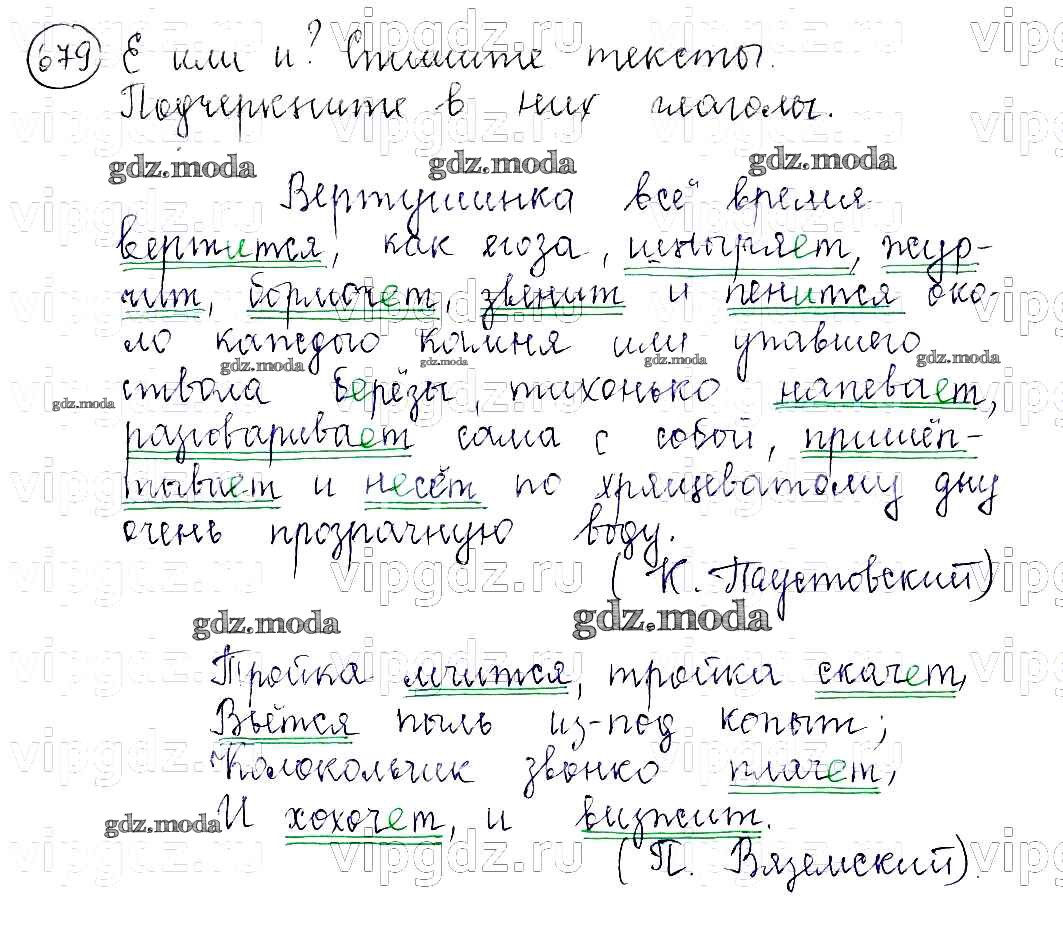 679 Е или и? Спишите тексты.
Подчеркните в них глаголы.
gdz.moda gdz.moda gdz.moda
Вертушинка всё время
вертится, как егоза, шныряет, жур-
чит, бормочет, звенит и пенится око-
ло каждого камня или упавшего
gdz.moda gdz.moda gdz.moda
gdz.moda ствола берёзы, тихонько напевает,
разговаривает сама с собой, пришёп-
тывает и несёт по хрящеватому дну
очень прозрачную воду.
(К. Паустовский)
gdz.moda gdz.moda
Тройка мчится, тройка скачет,
Вьётся пыль из-под копыт;
Колокольчик звонко плачет,
gdz.moda И хохочет, и визжит.
(П. Вяземский).
vipgdz.ru